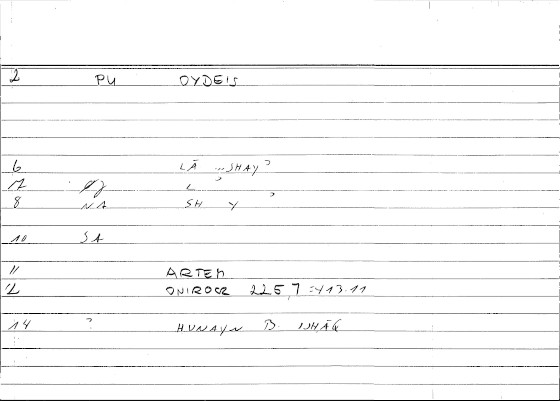 2 PU OYDEIS
6 LĀ ..SHAY ʾ
L ʾ
8 NA SH Y ʾ
10 SA
11 ARTEM
12 ONIROCR 225,7 413.11
14 ? HUNAYN B. ISHĀQ